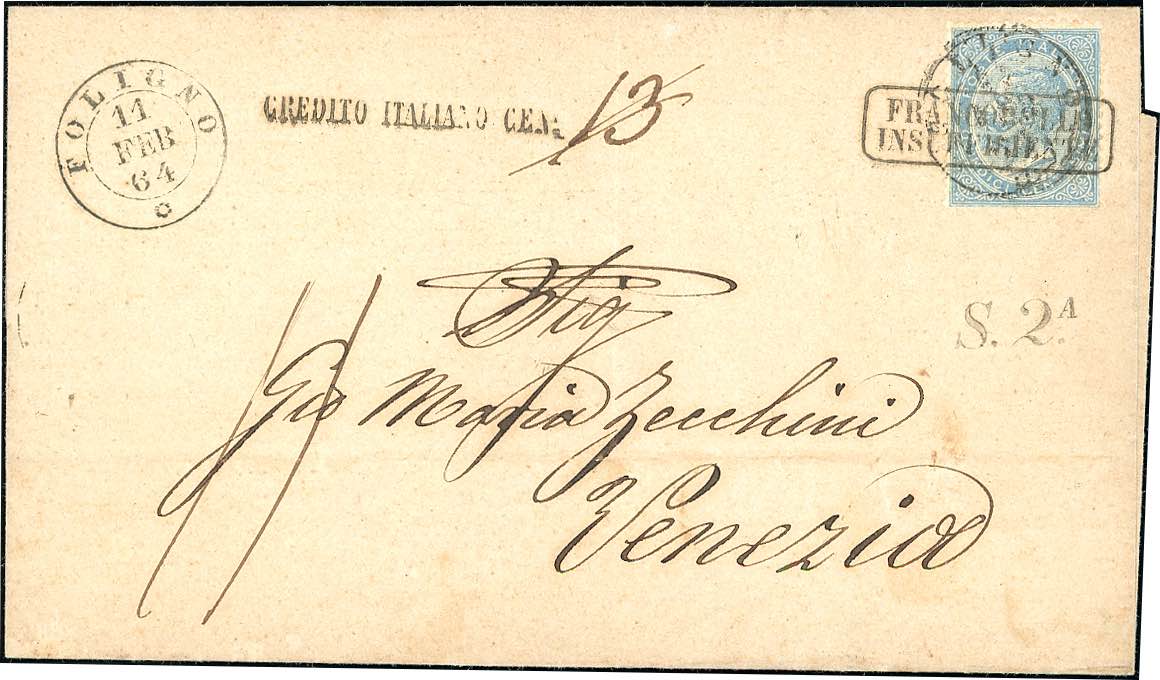 FOLIGNO
11
FEB
64
C
CREDITO ITALIANO CEN.
13
FRANCOBOLLO
INSUFFICIENTE
S. 2.A
Sig
Gio Maria Zecchini
Venezia